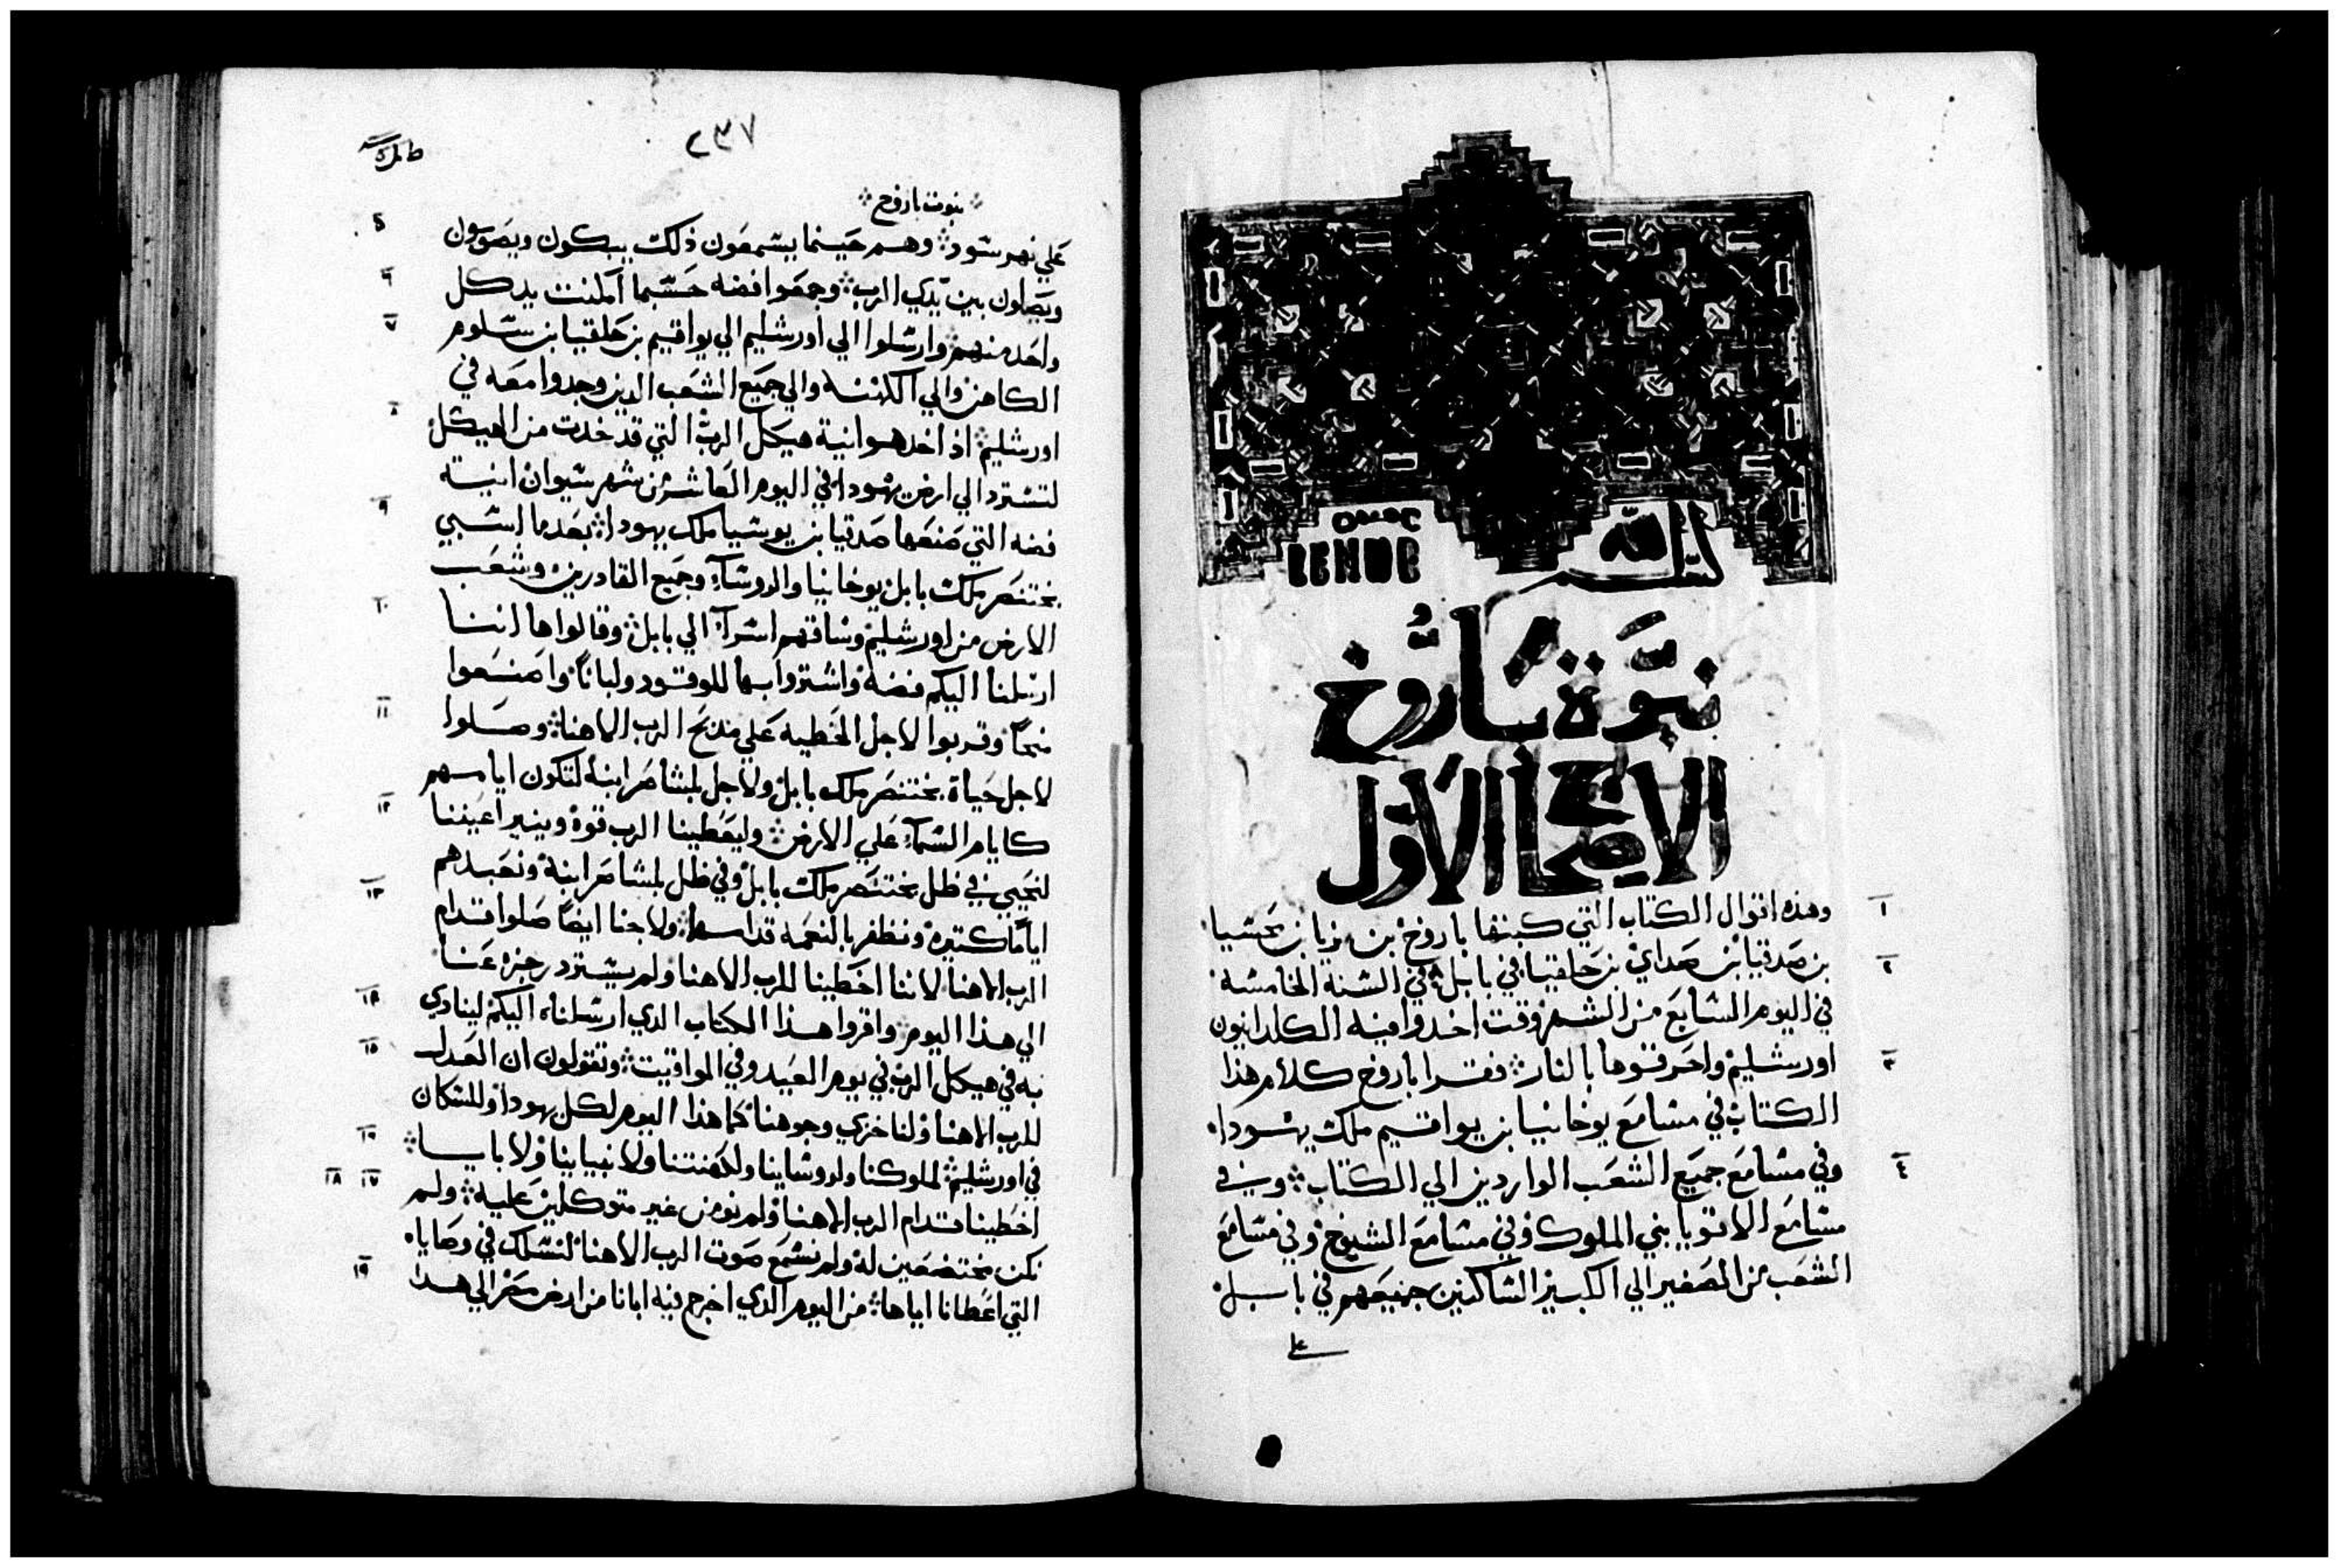 بسم الله
نبوة باروخ
الاصحاح الاول
١ وهذه اقوال الكتاب التي كتبها باروخ بن نريا بن محسيا
٢ بن صدقيا بن صداي بن حلقيا في بابل في السنه الخامسة
في اليوم السابع من الشهر وقت اخدوا فيه الكلدانيون
٣ اورشليم واحرقوها بالنار فقرا باروخ كلام هذا
الكتاب في مسامع يوخانيا بن يواقيم ملك يهودا
٤ وفي مسامع جميع الشعب الواردين الي الكتاب وفي
مسامع الاقويا بني الملوك وفي مسامع الشيوخ وفي مسامع
الشعب من الصغير الي الكبير الساكنين جميعهم في بابل
علي
٢٣٧
نبوت باروخ
٥ علي نهر سود وهم حينما يسمعون ذلك يبكون ويصومون
٦ ويصلون بين يدي الرب وجمعوا فضه حسبما امكنت يد كل
٧ واحد منهم وارسلوا الي اورشليم الي يواقيم بن حلقيا بن سلوم
الكاهن والي الكهنه والي جميع الشعب الدين وجدوا معه في
٨ اورشليم اذ اخد هو انية هيكل الرب التي قد خدت من الهيكل
لتسترد الي ارض يهودا في اليوم العاشر من شهر سيوان انية
٩ فضه التي صنعها صدقيا بن يوسيا ملك يهودا بعدما استبي
بختنصر ملك بابل يوخانيا والروساء وجميع القادرين وشعب
١٠ الارض من اورشليم وساقهم اسراء الي بابل وقالوا ها اننا
ارسلنا اليكم فضه واشتروا بها للوقود ولبانا واصنعوا
١١ منحا وقربوا لاجل الخطيه علي مدبح الرب الاهنا وصلوا
لاجل حياة بختنصر ملك بابل ولاجل بلشاصر ابنه لتكون ايامهم
١٢ كايام السماء علي الارض وليعطينا الرب قوة وينير اعيننا
لنحيي في ظل بختنصر ملك بابل وفي ظل بلشاصر ابنه ونعبدهم
١٣ اياما كتيرة ونظفر بالنعمه قدامهما ولاجلنا ايضا صلوا قدام
الرب الاهنا لاننا اخطينا للرب الاهنا ولم يسترد رجزه عنا
١٤ الي هذا اليوم واقروا هذا الكتاب الدي ارسلناه اليكم لينادي
١٥ به في هيكل الرب في يوم العيد وفي المواقيت وتقولون ان العدل
للرب الاهنا ولنا خزي وجوهنا كما هذا اليوم لكل يهودا وللسكان
١٦ في اورشليم لملوكنا ولروساينا ولكهنتنا ولانبياينا ولابايا
١٧ ١٨ اخطينا قدام الرب الاهنا ولم نومن غير متوكلين عليه ولم
نكن مختضعين له ولم نسمع صوت الرب الاهنا لنسلك في وصاياه
١٩ التي اعطانا اياها من اليوم الدي اخرج فيه ابانا من ارض مصر الي هدا